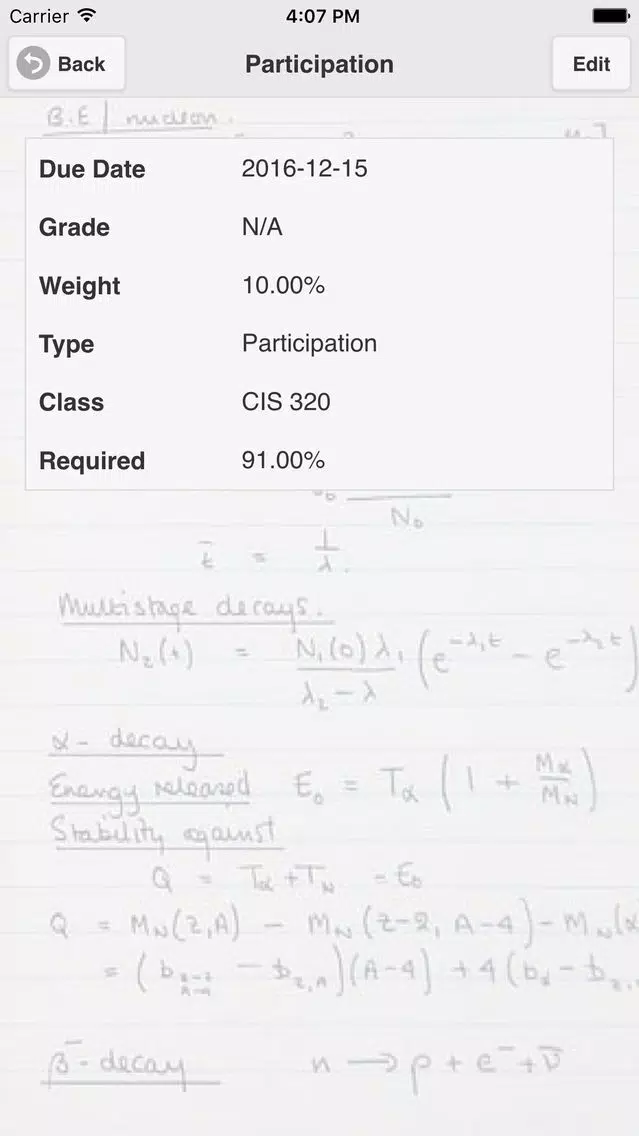 Carrier 4:07 PM
Back Participation Edit
B.E / nucleon.
Due Date 2016-12-15
Grade N/A
Weight 10.00%
Type Participation
Class CIS 320
Required 91.00%
N₀
t̄ = 1/λ.
Multistage decays.
N₂(t) = N₁(0)λ₁/(λ₂-λ) (e^-λ₁t - e^-λ₂t)
α- decay
Energy released E₀ = Tα (1 + Mα/MN)
Stability against
Q = Tα+TN = E₀
Q = MN(Z,A) - MN(Z-2, A-4) - MN(α
= (b Z-2 A-4 - b Z,A)(A-4) + 4(bα - b Z,
β⁻- decay n → p + e⁻ + ν̄